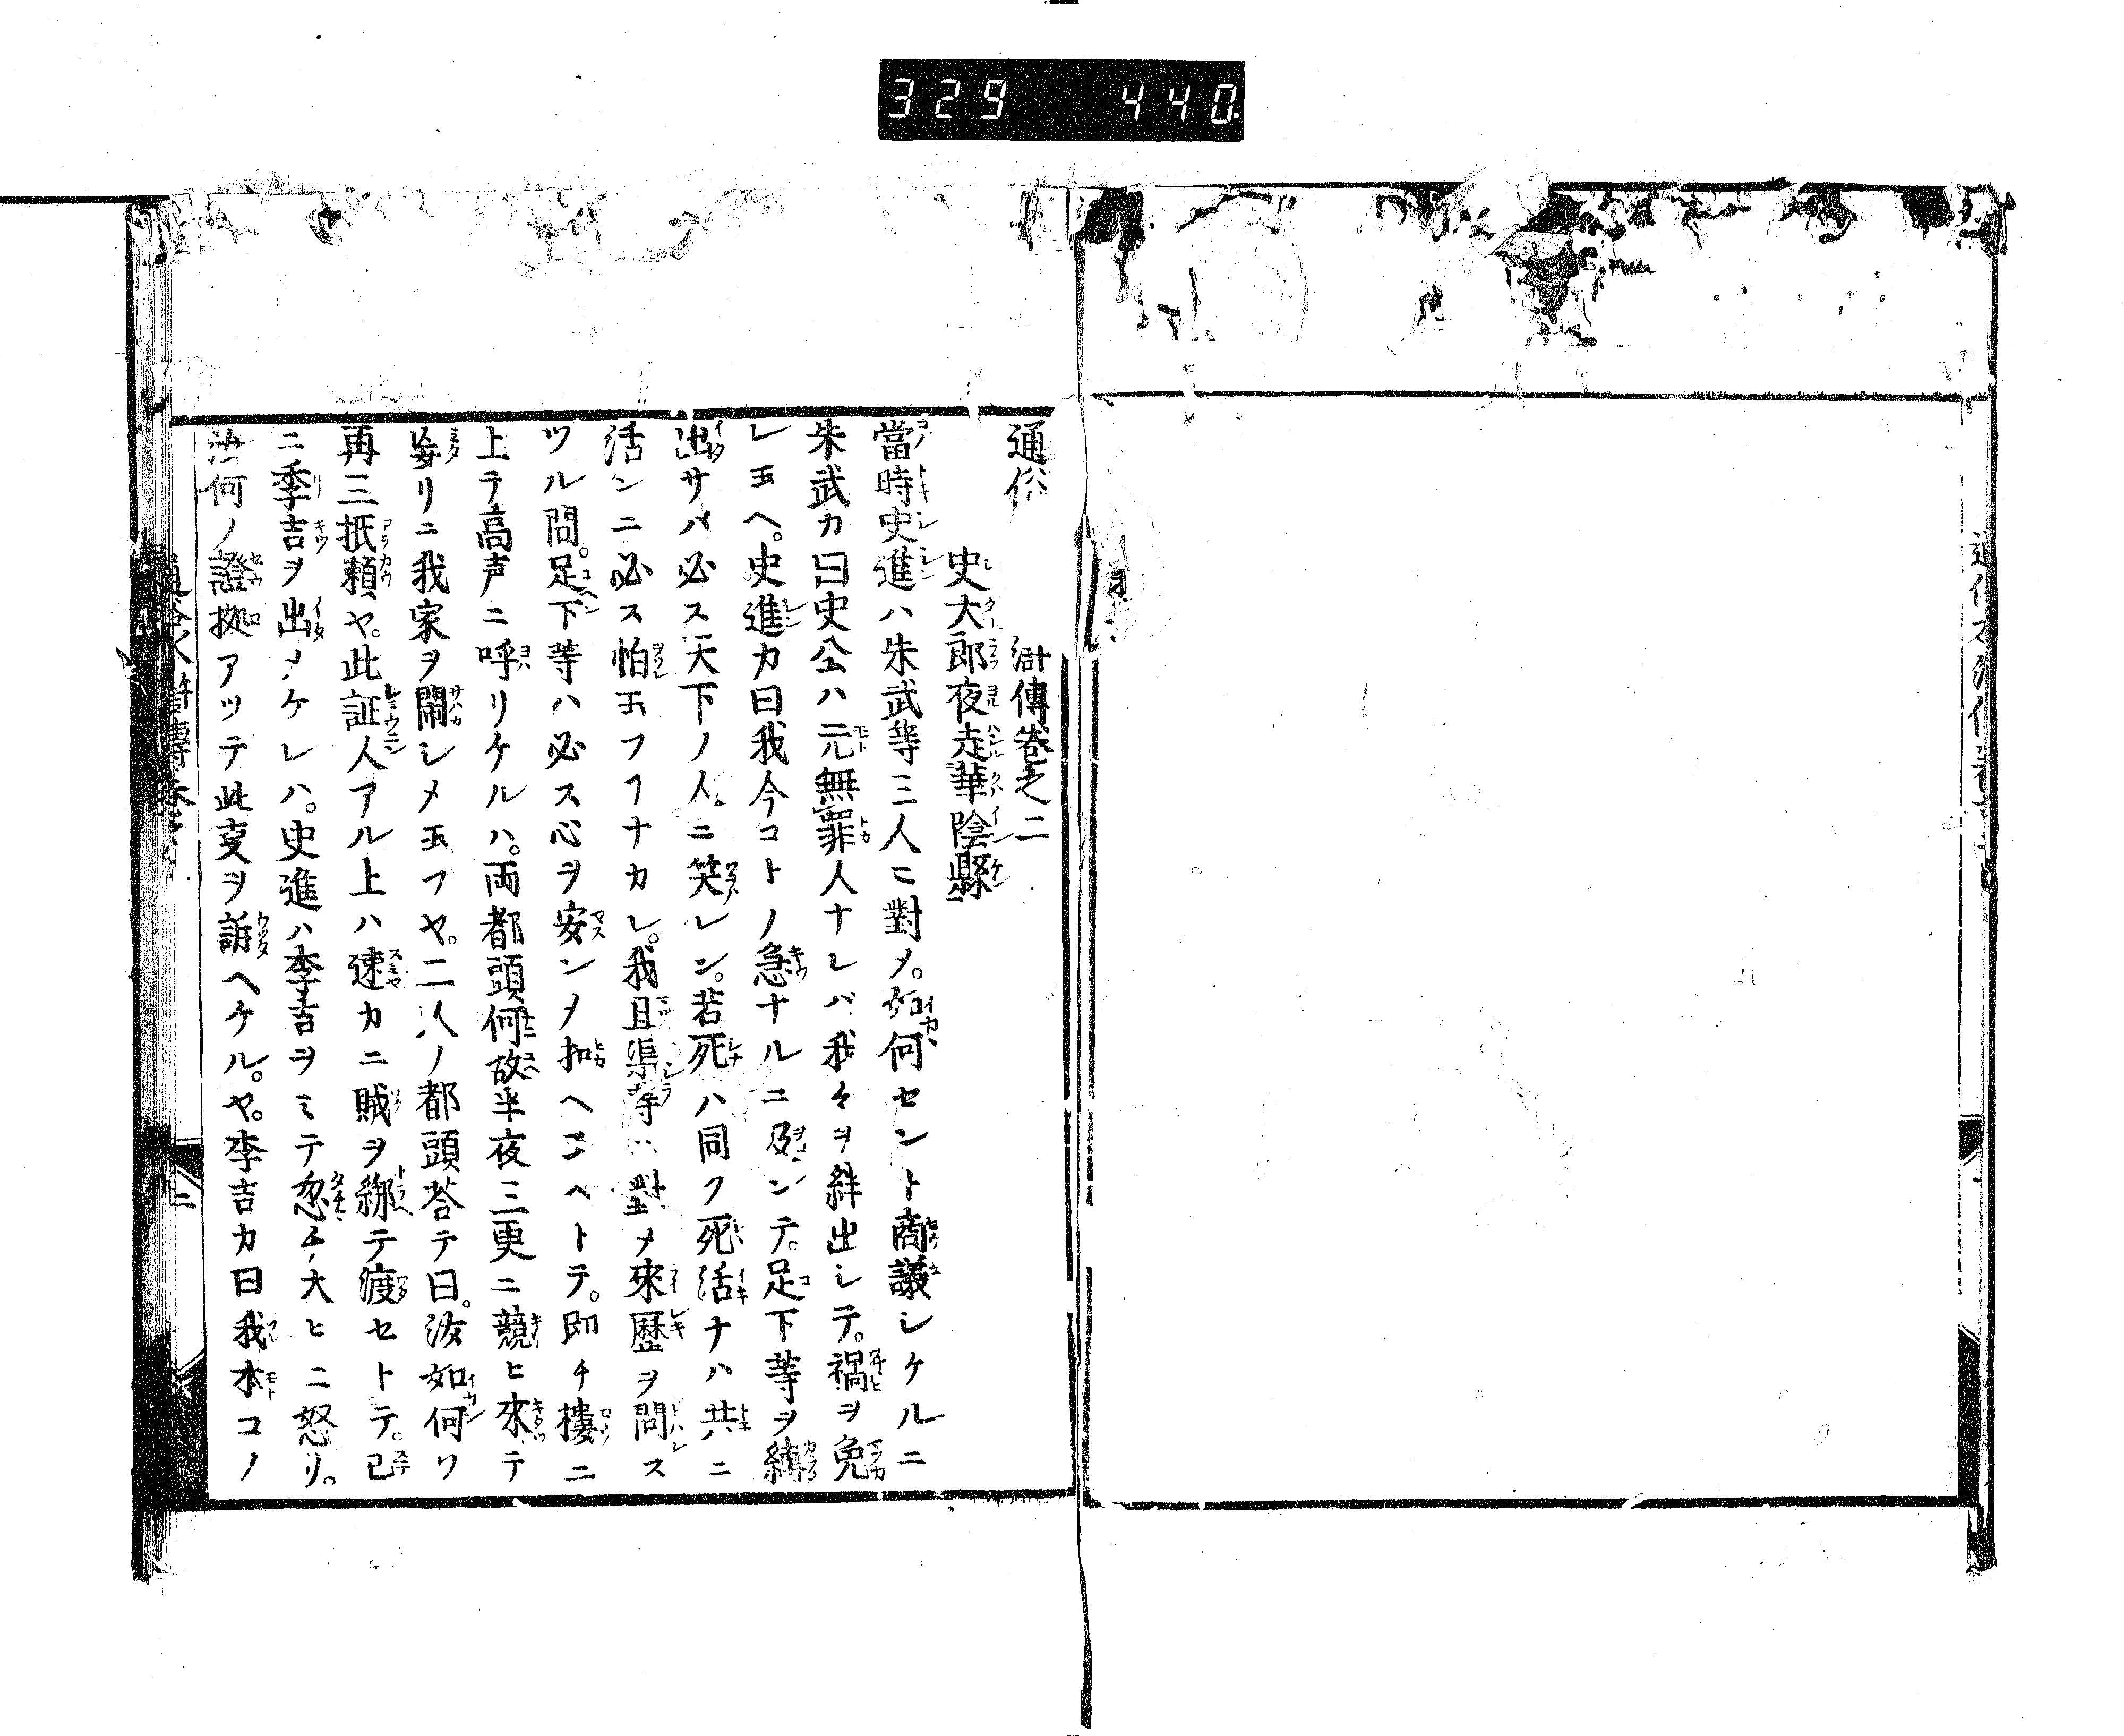 329 440
通俗 滸傳卷之二
史大郎夜走華陰縣
當時史進ハ朱武等三人ニ對メ。如何セント商議シケルニ
朱武カ曰史公ハ元無罪人ナレバ我々ヲ絆出シテ。禍ヲ免
レ玉ヘ。史進カ曰我今コトノ急ナルニ及ンテ。足下等ヲ縛
出サバ必ス天下ノ人ニ笑レン。若死ハ同ク死活ナハ共ニ
活ンニ必ス怕玉フヿナカレ。我且渠等ニ對メ來歷ヲ問ス
ツル間。足下等ハ必ス心ヲ安ンメ扣ヘ玉ヘトテ。即チ樓ニ
上テ高声ニ呼リケルハ。両都頭何故半夜三更ニ競ヒ來テ
妄リニ我家ヲ閙シメ玉フヤ。二人ノ都頭荅テ曰。汝如何ソ
再三抵頼ヤ。此証人アル上ハ速カニ賊ヲ綁テ渡セトテ。已
ニ李吉ヲ出メケレハ。史進ハ李吉ヲミテ忽チ大ヒニ怒リ。
汝何ノ證拠アツテ此叓ヲ訴ヘケル。ヤ。李吉カ曰我本コノ
通俗水滸傳卷之
二